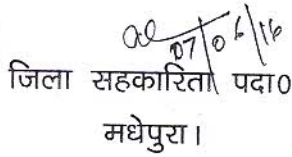 07/06/16
जिला सहकारिता पदा०
मधेपुरा।